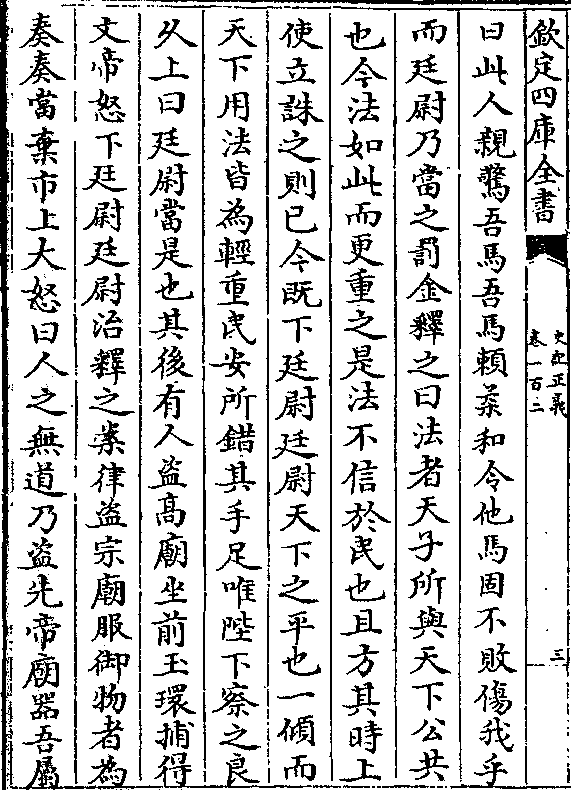 欽定四庫全書
史記正義
卷一百二
三
曰此人親驚吾馬吾馬賴柔和令他馬固不敗傷我乎
而廷尉乃當之罰金釋之曰法者天子所與天下公共
也今法如此而更重之是法不信於民也且方其時上
使立誅之則已今既下廷尉廷尉天下之平也一傾而
天下用法皆為輕重民安所錯其手足唯陛下察之良
乆上曰廷尉當是也其後有人盗髙廟坐前玉環捕得
文帝怒下廷尉廷尉治釋之案律盗宗廟服御物者為
奏奏當棄市上大怒曰人之無道乃盗先帝廟器吾屬